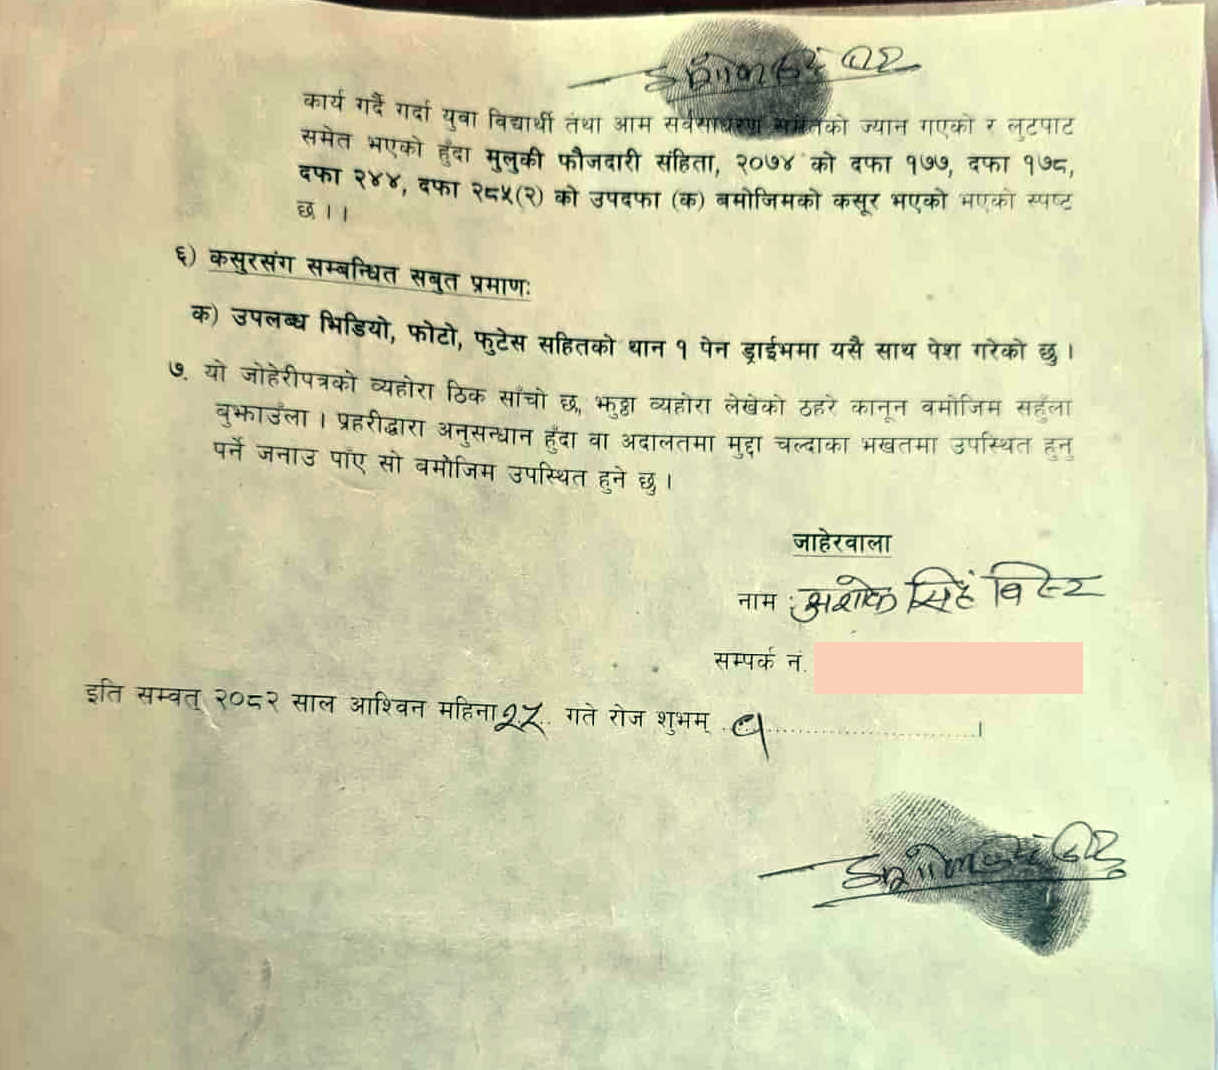 कार्य गर्दै गर्दा युवा विद्यार्थी तथा आम सर्वसाधारण समेतको ज्यान गएको र लुटपाट
समेत भएको हुँदा मुलुकी फौजदारी संहिता, २०७४ को दफा १७७, दफा १७८,
दफा २४४, दफा २८५(२) को उपदफा (क) बमोजिमको कसूर भएको भएको स्पष्ट
छ ।।
६) कसुरसंग सम्बन्धित सबुत प्रमाणः
क) उपलब्ध भिडियो, फोटो, फुटेस सहितको थान १ पेन ड्राईभमा यसै साथ पेश गरेको छु ।
७. यो जोहेरीपत्रको व्यहोरा ठिक साँचो छ, झुठ्ठा व्यहोरा लेखेको ठहरे कानून वमोजिम सहुँला
बुझाउँला । प्रहरीद्वारा अनुसन्धान हुँदा वा अदालतमा मुद्दा चल्दाका भखतमा उपस्थित हुनु
पर्ने जनाउ पाँए सो बमोजिम उपस्थित हुने छु ।
जाहेरवाला
नाम : अशोक सिंह विस्ट
सम्पर्क नं.
इति सम्वत् २०८२ साल आश्विन महिना गते रोज शुभम् ।